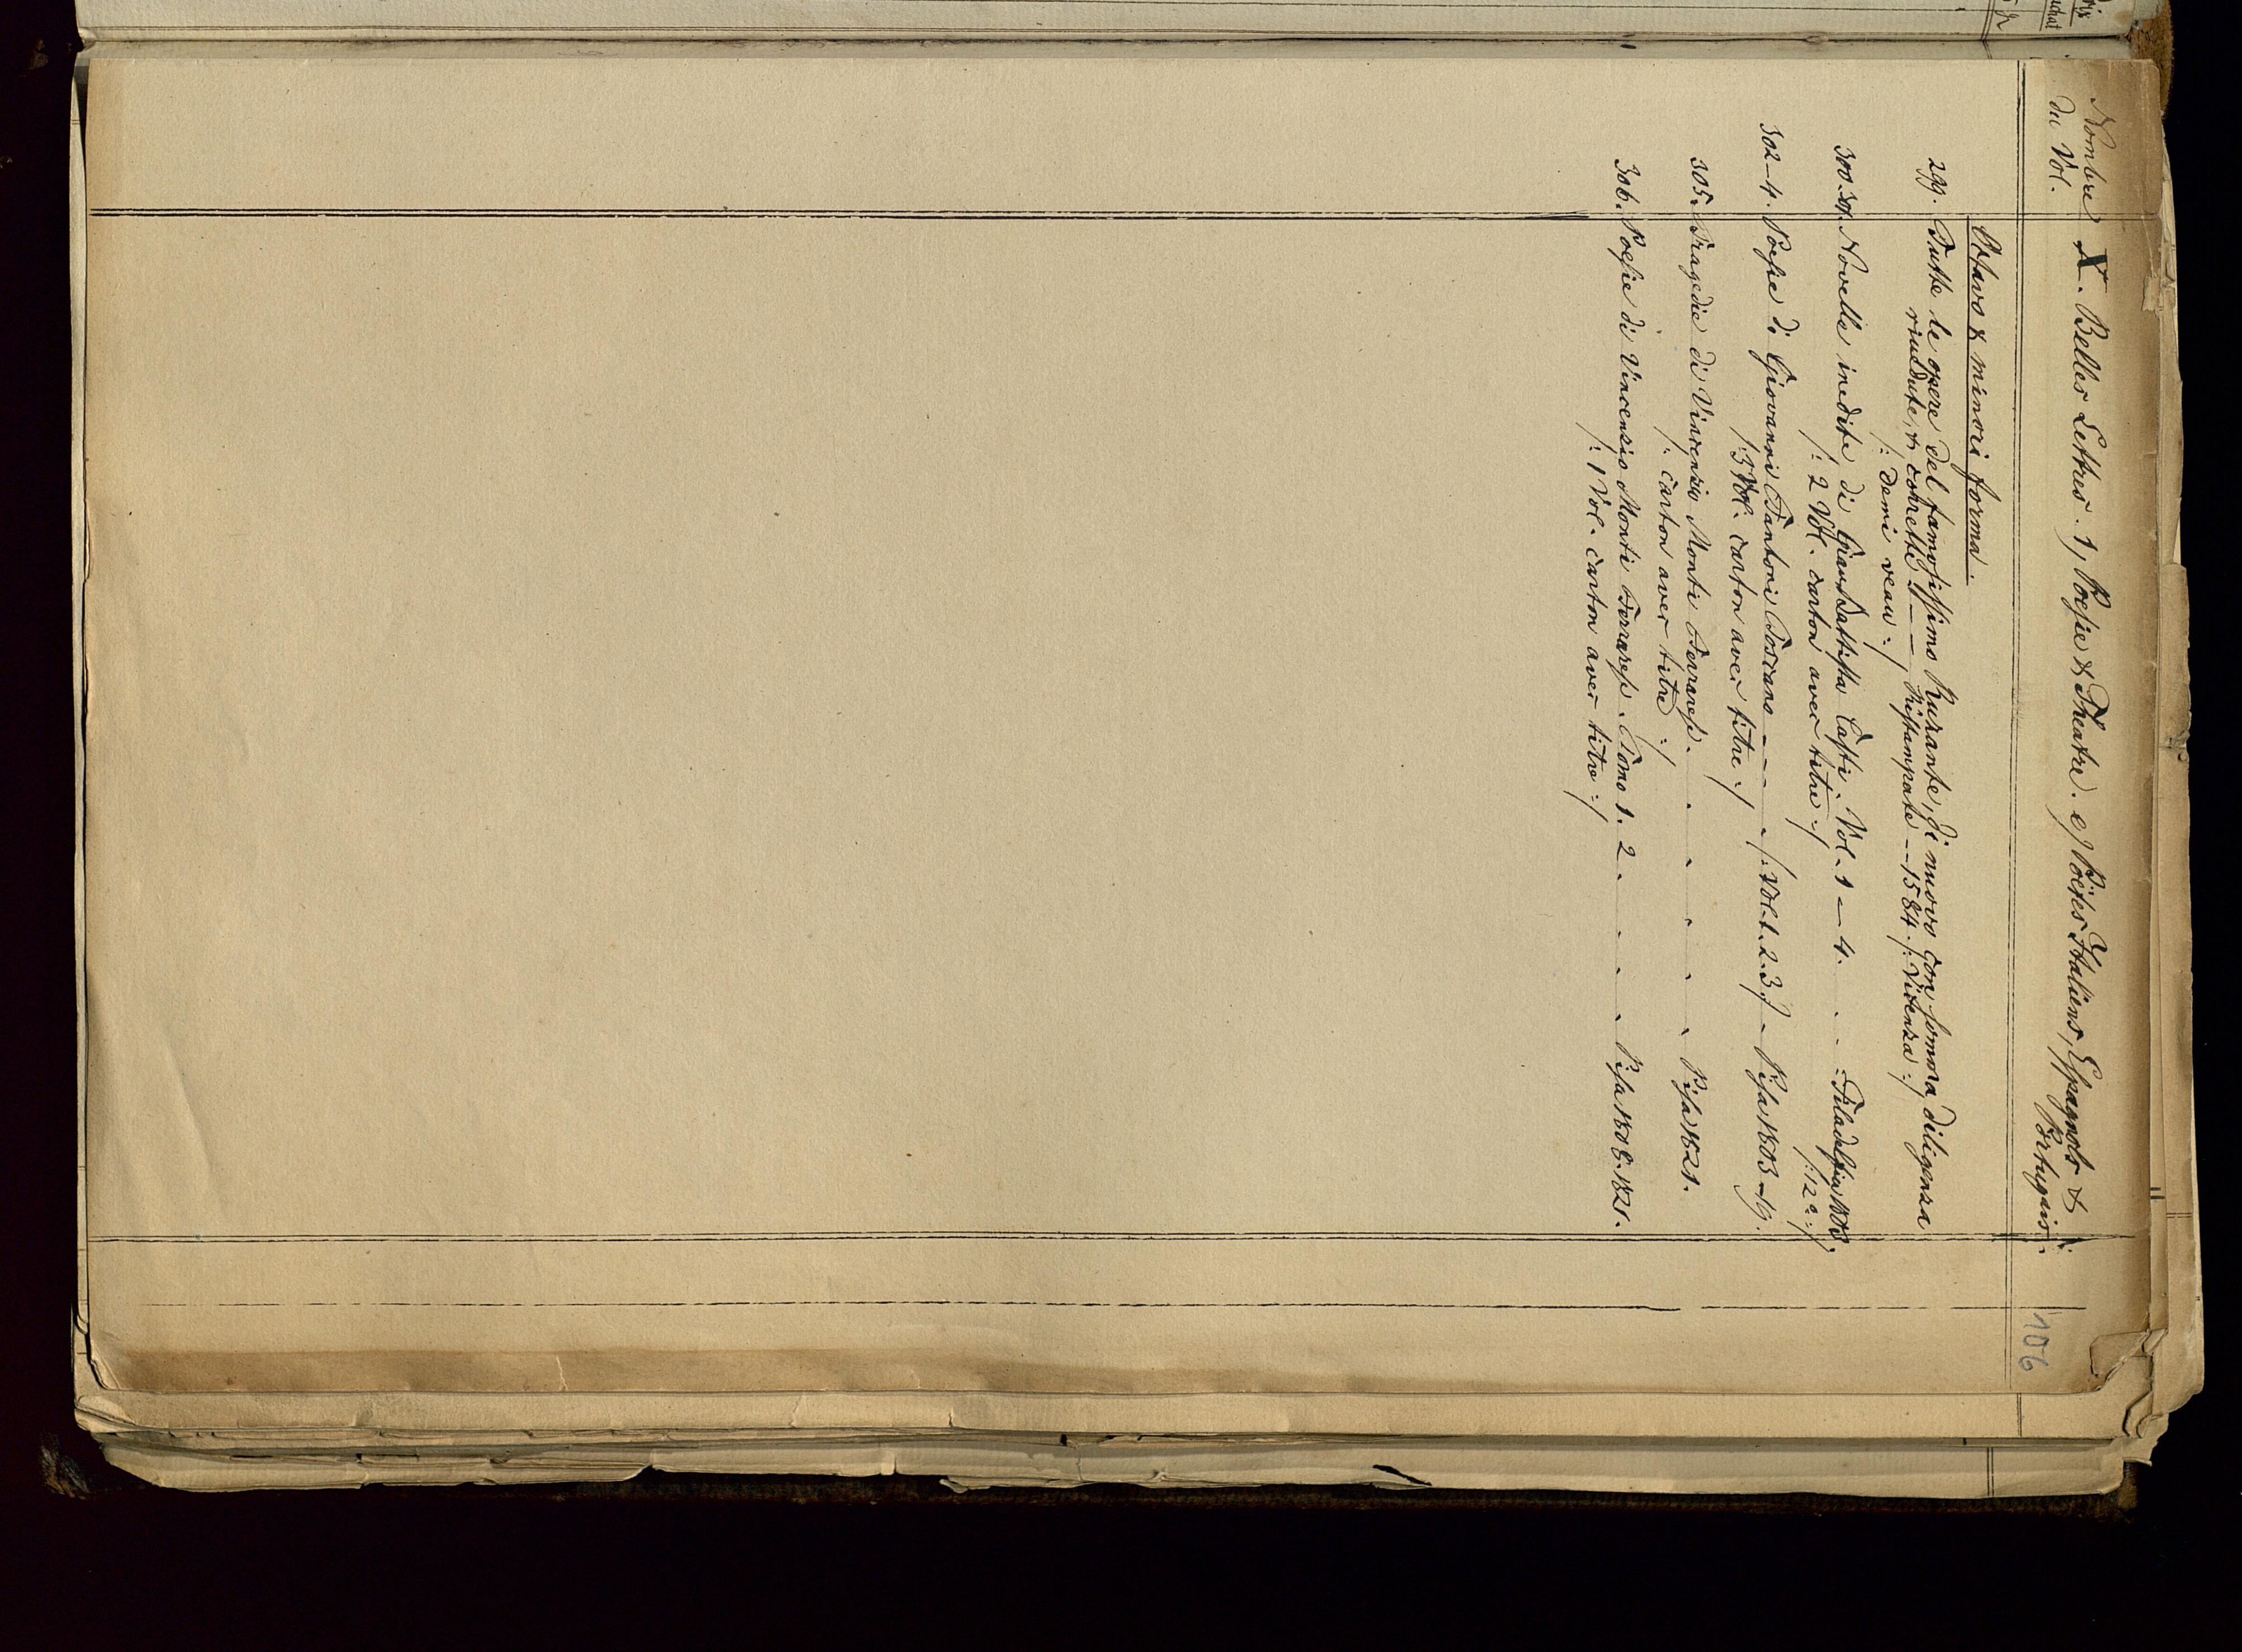 Nombre du Vol.
X. Belles Lettres. 1, Poesie & Theatre. e) Poëtes Italiens, Espagnols &
Portugais.
106
Octavo & minori forma.
299. Tutte le opere del famosissimo Ruzante, di nuovo con somma diligenza
rivedute, & corrette - - Ristampate - 1584. /: Vicenza :/
/: demi veau :/
300.301. Novelle inedite di Giambattista Casti. Vol. 1 - 4. - - Filadelfia 1803.
/: 2 Vol. carton avec titre :/ /: 12° :/
302-4. Poesie di Giovanni Fantoni Toscano - - - /: Vol. 1. 2. 3 :/ - Pisa 1803-19.
/: 3 Vol. carton avec titre :/
305. Tragedie di Vincenzio Monti Ferrarese. - - - - - Pisa 1821.
/: carton avec titre :/
306. Poesie di Vincenzio Monti Ferrarese. Tomo 1. 2. - - - Pisa 1808.1821.
/: 1 Vol. carton avec titre :/